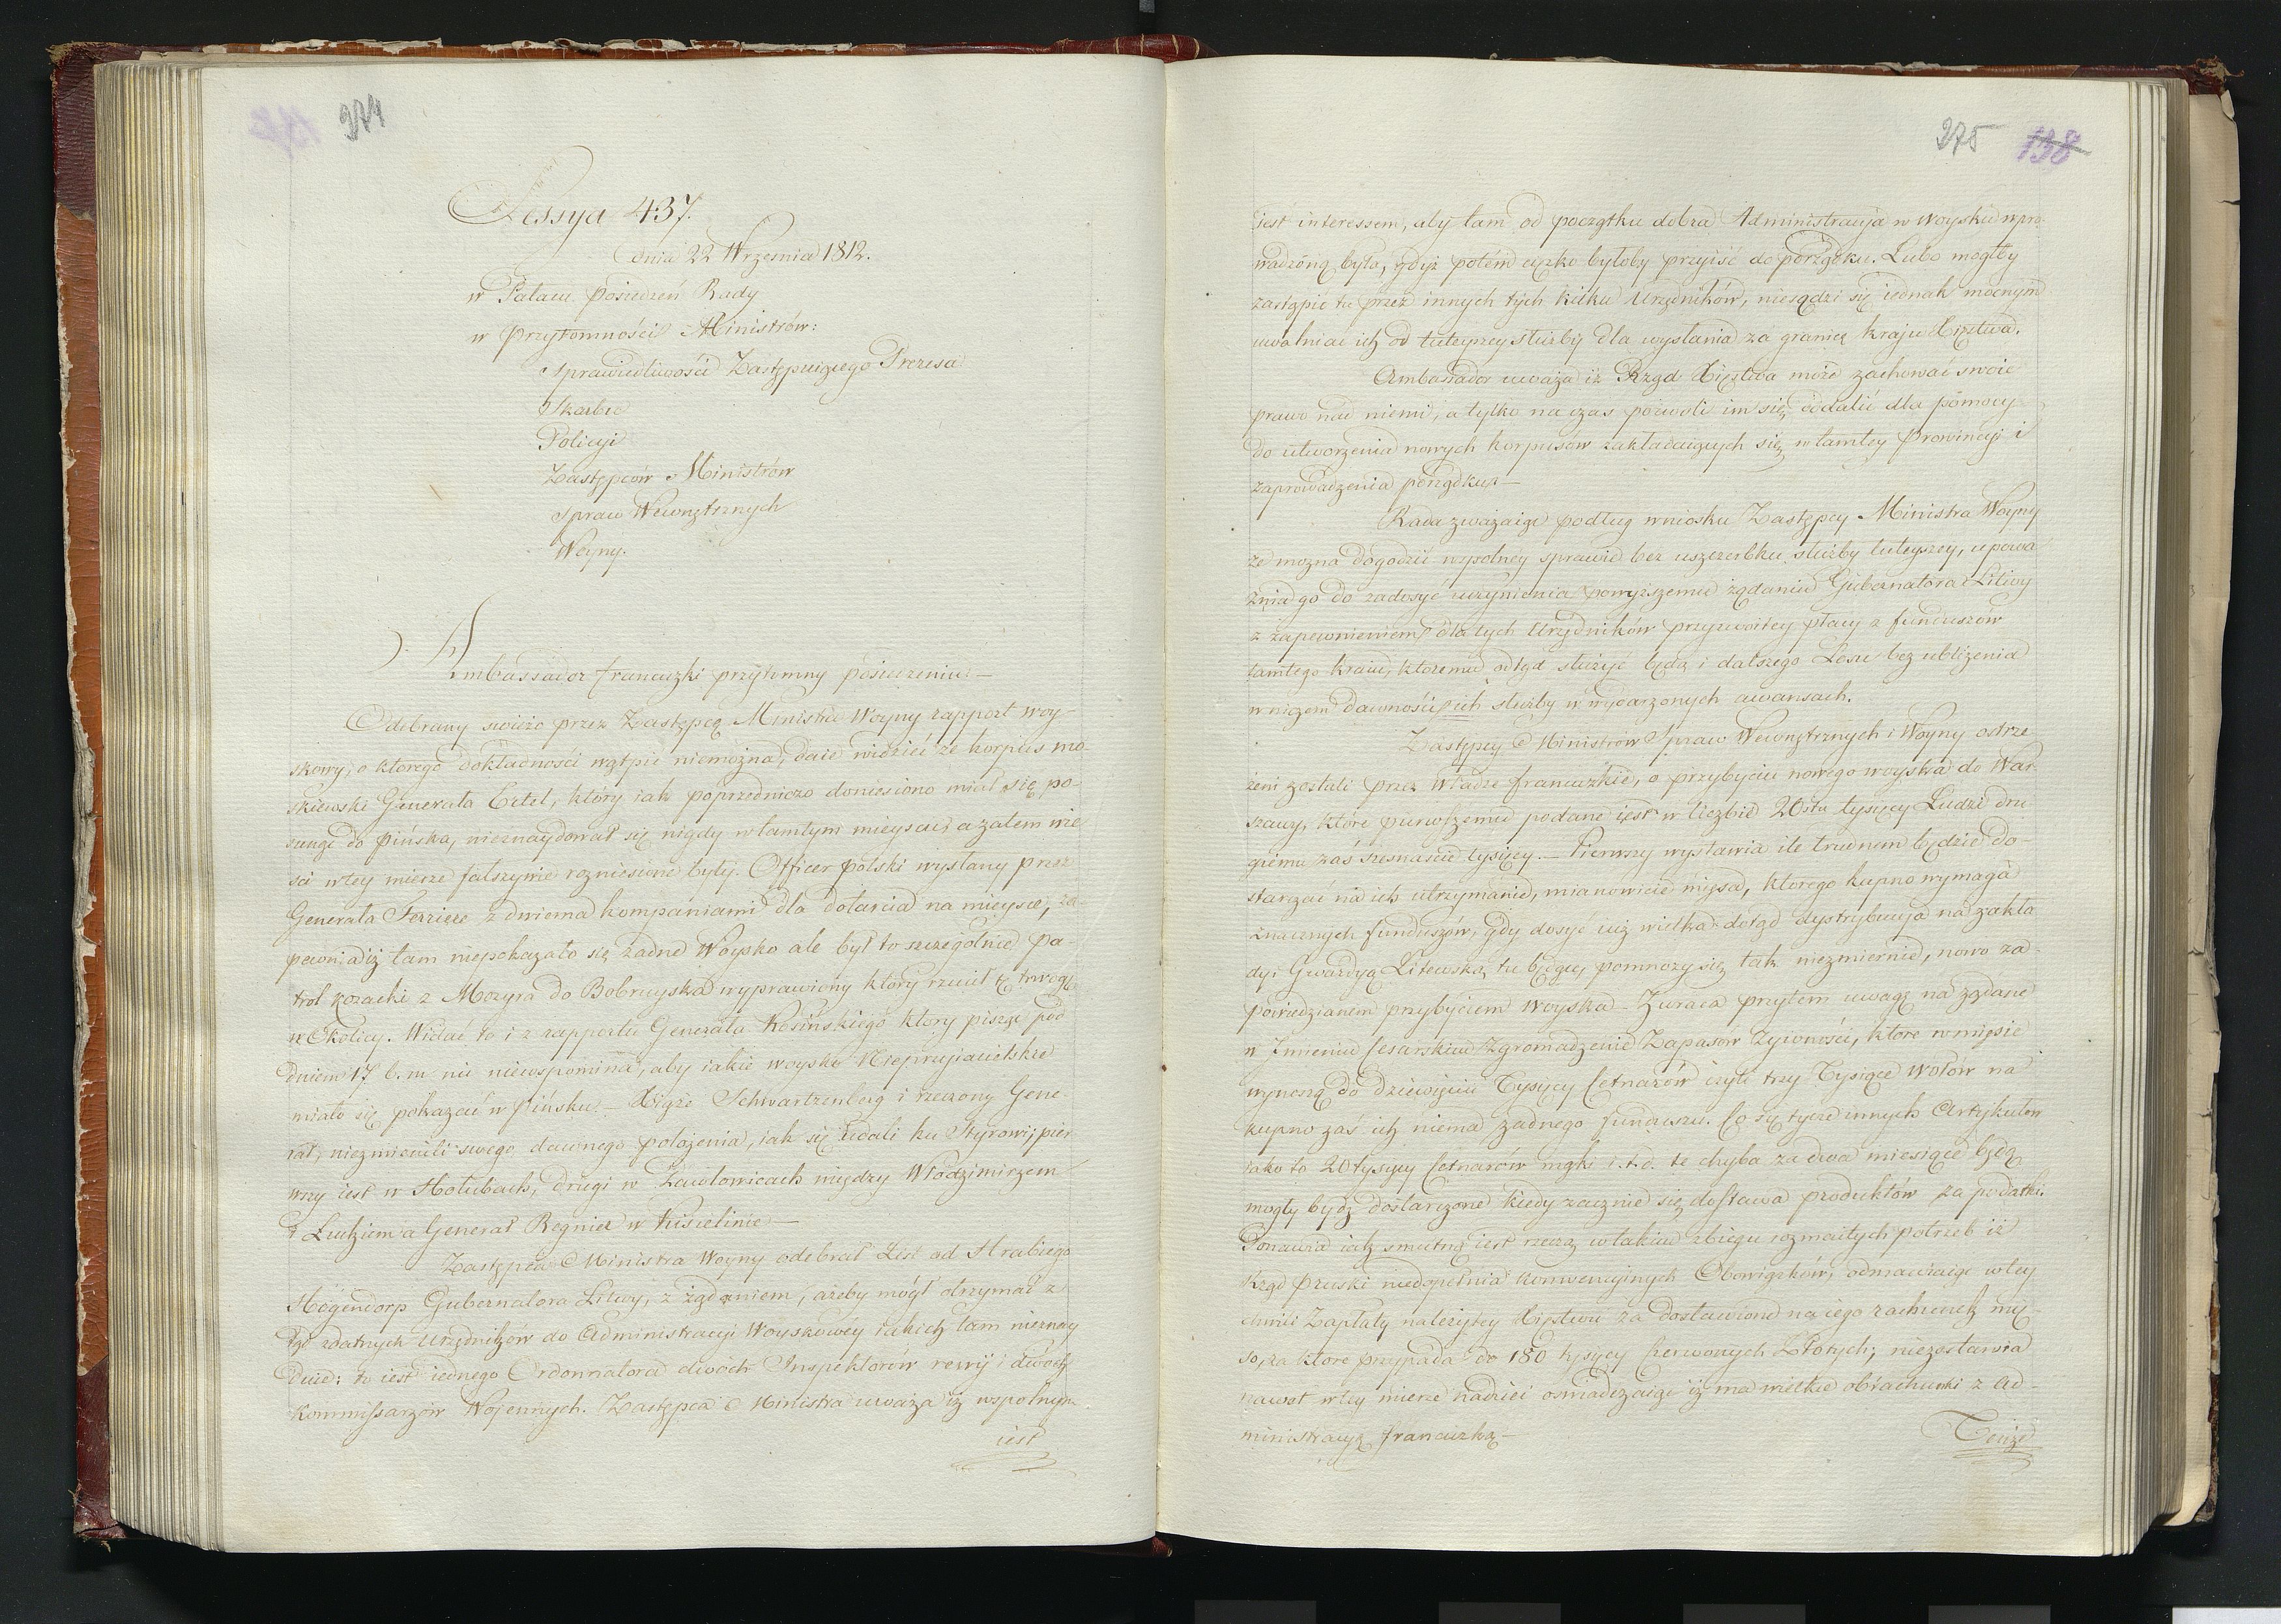 274
Sessya 437.
Dnia 22 Września 1812.
w Pałacu posiedzeń Rady
w Przytomności Ministrów:
Sprawiedliwości Zastępuiącego Prezesa
Skarbu
Policyi
Zastępców Ministrów
Spraw Wewnętrznych
Woyny.
Ambassador francuzki przytomny posiedzeniu. —
Odebrany świeżo przez Zastępcę Ministra Woyny rapport woy-
skowy, o którego dokładności wątpić niemożna, daie widzieć że korpus mo-
skiewski Generała Ertel, który iak poprzedniczo doniesiono miał się po-
sunąć do Pińska, nieznaydował się nigdy w tamtym mieyscu, a zatem wie
ści w tey mierze fałszywie rozniesione były. Officer polski wysłany przez
Generała Ferriere z dwiema kompaniami dla dotarcia na mieysce, za-
pewnia iż tam niepokazało się żadne Woysko ale był to szczególnie pa-
trol kozacki z Mozyra do Bobruyska wyprawiony który rzucił tę trwogę
w Okolicy. Widać to i z rapportu Generała Kosińskiego który pisząc pod
dniem 17 b. m nic niewspomina, aby iakie woysko Nieprzyiacielskie
miało się pokazać w Pińsku. — Xiąże Schwartzenberg i rzeczony Gene-
rał, niezmienili swego dawnego położenia, iak się udali ku Styrowi, pier
wszy iest w Hołubach, drugi w Zawłowicach między Włodzimirzem
i Łuckiem a Generał Regnier w Kisielinie —
Zastępca Ministra Woyny odebrał List od Hrabiego
Hogendorp Gubernatora Litwy, z żądaniem, ażeby mógł otrzymać z
tąd zdatnych urzędników do Administracyi Woyskowéy iakich tam nieznay
duie: to iest iednego Ordonnatora dwóch Inspektorów rewij i dwóch
Kommissarzów Wojennych. Zastępca Ministra uważa iż wspólnym
iest
275 138
iest interessem, aby tam od początku dobra Administracyja w woysku wpro-
wadzóną była, gdyż potém cięzko byłoby przyiść do porządku. Lubo mogłby
zastąpić tu przez innych tych kilku Urzędników, niesądzi się iednak mocnym
uwalniać ich od tuteyszey służby dla wysłania za granicę kraju Xięstwa.
Ambassador uważa iż Rząd Xięstwa może zachować swoie
prawo nad niemi, a tylko na czas pozwoli im się oddalić dla pomocy
do utworzenia nowych korpusów zakładaiących się w tamtey Prowincyi i
zaprowadzenia porządku. —
Rada zważaiąc podług wniosku Zastępcy Ministra Woyny
że można dogodzić wspólney sprawie bez uszczerbku służby tuteyszey, upowa
żnia go do zadosyć uczynienia powyższemu żądaniu Gubernatora Litwy
z zapewnieniem dla tych Urzędników przyzwoitey płacy z funduszów
tamtego kraiu, któremu odtąd służyć będą i dalszego Losu bez ubliżenia
w niczem dawności ich służby w wydarzonych awansach.
Zastępcy Ministrów Spraw Wewnętrznych i Woyny ostrze
żeni zostali przez władze francuzkie, o przybyciu nowego woyska do War-
szawy, które pierwszemu podane iest w liczbie 20stu tysięcy Ludzi dru
giemu zaś szesnaście tysięcy. — Pierwszy wystawia ile trudnem będzie do-
starczać na ich utrzymanie, mianowicie mięsa, którego kupno wymaga
znacznych funduszów, gdy dosyć iuż wielka dotąd dystrybucyja na zakła
dy i Gwardyą Litewską tu będącą pomnoży się tak niezmiernie, nowo za-
powiedzianem przybyciem woyska — Zwraca przytem uwagę na żądane
w Imieniu Cesarskim zgromadzenie Zapasów Żywności, które w mięsie
wynoszą do dziewięciu Tysięcy Cetnarów czyli trzy Tysiące wołów na
kupno zaś ich niema żadnego funduszu. Co się tycze innych Artykułów
iako to 20 tysięcy Cetnarów mąki i. t. d. te chyba za dwa miesiące będą
mogły bydź dostarczone kiedy zacznie się dostawa produktów za podatki.
Ponawia iak smutną iest rzeczą w takim zbiegu rozmaitych potrzeb iż
Rząd pruski niedopełnia konwencyjnych Obowiązków, odmawiaiąc w tey
chwili Zapłaty należytey Xięstwu za dostawione na iego rachunek mię-
so, za które przypada do 180 tysięcy Czerwonych Złotych; niezostawia
nawet w tey mierze nadziei oświadczaiąc iż ma wielkie obrachunki z Ad-
ministracyą francuzką —
Tenże